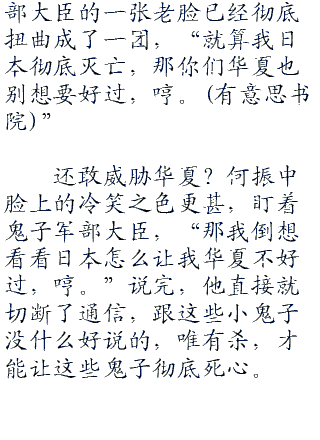 部大臣的一张老脸已经彻底
扭曲成了一团，“就算我日
本彻底灭亡，那你们华夏也
别想要好过，哼。(有意思书
院)”
还敢威胁华夏？何振中
脸上的冷笑之色更甚，盯着
鬼子军部大臣，“那我倒想
看看日本怎么让我华夏不好
过，哼。”说完，他直接就
切断了通信，跟这些小鬼子
没什么好说的，唯有杀，才
能让这些鬼子彻底死心。